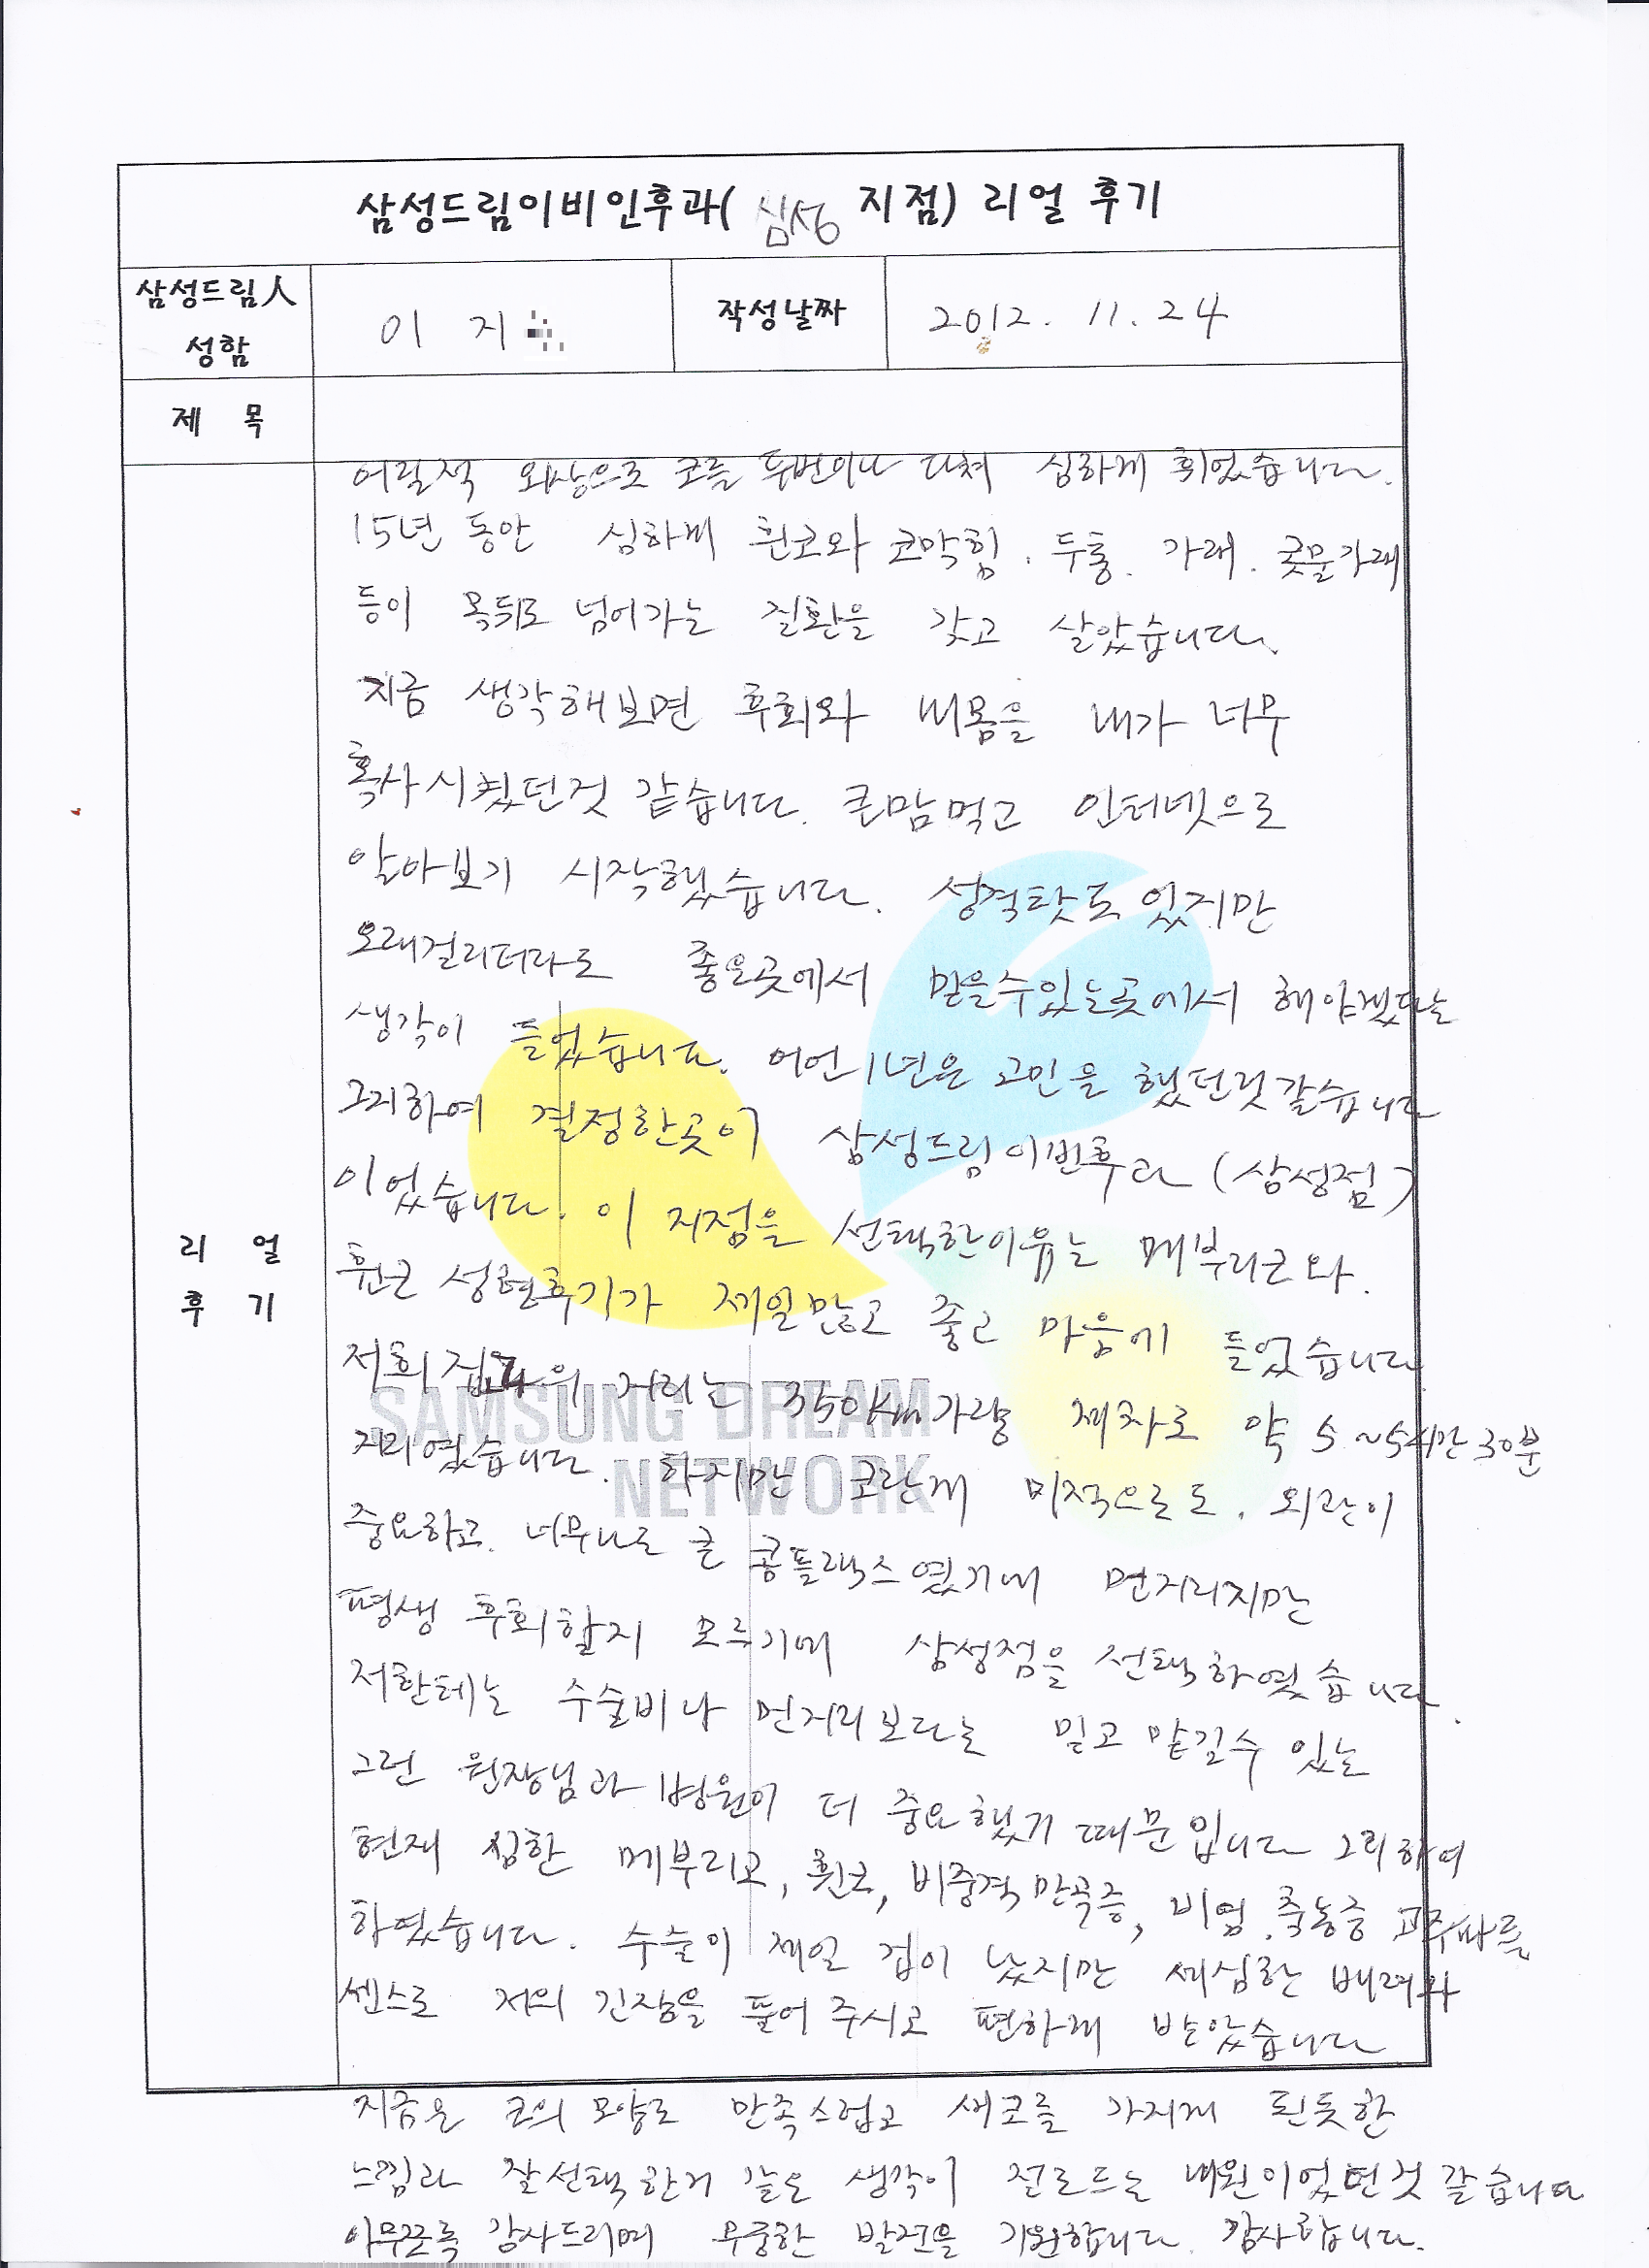 삼성드림이비인후과( 삼성 지점) 리얼 후기
삼성드림人 성함
이 지
작성날짜
2012. 11. 24
제 목
리 얼 후 기
어릴적 외상으로 코를 두번이나 다쳐 심하게 휘었습니다.
15년 동안 심하게 휜코와 코막힘. 두통. 가래. 콧물가래
등이 목뒤로 넘어가는 질환을 갖고 살았습니다.
지금 생각해보면 후회와 내몸을 내가 너무
혹사시켰던것 같습니다. 큰맘먹고 인터넷으로
알아보기 시작했습니다. 성격탓도 있지만
오래걸리더라도 좋은곳에서 믿을수있는곳에서 해야겠다는
생각이 들었습니다. 어언 1년은 고민을 했던것같습니다
그리하여 결정한곳이 삼성드림이빈후과 (삼성점)
이었습니다. 이 지점을 선택한이유는 메부리코와.
휜코 성형후기가 제일많고 좋고 마음에 들었습니다.
저희집과의 거리는 350km가량 제차로 약 5~5시간 30분
거리였습니다. 하지만 코란게 미적으로도. 외관이
중요하고. 너무나도 큰 콤플랙스였기에 먼거리지만
평생 후회할지 모르기에 삼성점을 선택하였습니다.
저한테는 수술비나 먼거리보다는 믿고 맡길수 있는
그런 원장님과 병원이 더 중요했기 때문입니다 그리하여
현재 심한 메부리코, 휜코, 비중격만곡증, 비염.축농증 고주파를
하였습니다. 수술이 제일 겁이 났지만 세심한 배려와
쎈스로 저의 긴장을 풀어 주시고 편하게 받았습니다
지금은 코의 모양도 만족스럽고 새코를 가지게 된듯한
느낌과 잘선택한거 같은 생각이 절로드는 병원이었던것 같습니다
아무쪼록 감사드리며 무궁한 발전을 기원합니다. 감사합니다.
SAMSUNG DREAM
NETWORK